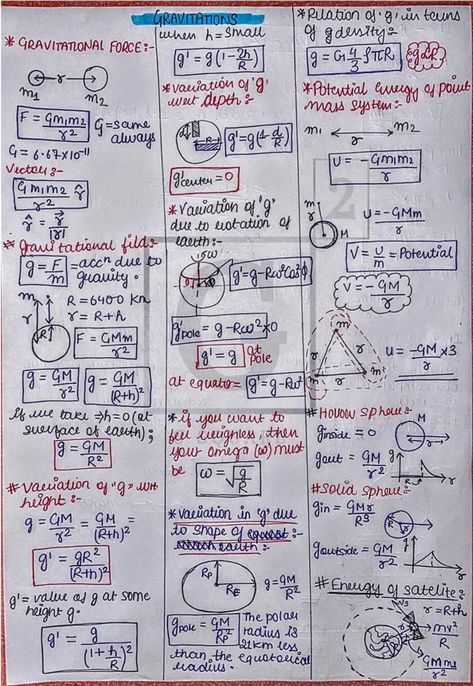 GRAVITATIONS
* GRAVITATIONAL FORCE:-
m1 r m2
F = Gm1m2/r² G = same always
G = 6.67×10⁻¹¹
Vector:-
Gm1m2/r² r̂
r̂ = r⃗/|r|
* Gravitational fild:-
g = F/m - accⁿ due to gravity.
m
R = 6400 Km
r = R+h
R
F = GMm/r²
g = GM/r² g = GM/(R+h)²
If we take h=0 (at
surface of earth);
g = GM/R²
# Variation of "g" wrt
height:-
g = GM/r² = GM/(R+h)² =
g' = gR²/(R+h)²
g' = value of g at some
height g.
g' = g/(1+h/R)²
when h = small
g' = g(1-2h/R)
* Variation of 'g'
wrt depth:-
g' = g(1-d/R)
g'center = 0
* Variation of 'g'
due to rotation of
earth:-
g' = g-Rω²cos²φ
g'pole = g-Rω²×0
g' = g at pole
at equator = g' = g-Rω²
* if you want to
feel weighless, then
your omega (ω) must
be ω = √g/R
* Variation in 'g' due
to shape of
earth:-
Rp
RE
g = GM/R²
gpole = GM/Rp² The polar
radius is
21km less
than the equatorial
radius.
* Relation of 'g' in terms
of g density:-
g = G4/3 ρπR g∝R
* Potential energy of point
mass system:-
m1 r m2
U = -Gm1m2/r
m
r
M
U = -GMm/r
V = U/m = Potential
V = -GM/r
m
r r
m r m
U = -GM/r × 3
# Hollow sphere:-
M
ginside = 0
gout = GM/r²
# Solid sphere:-
gin = GMr/R³
goutside = GM/r²
# Energy of satelite:-
r = R+h
mv²/R
GMm/r²